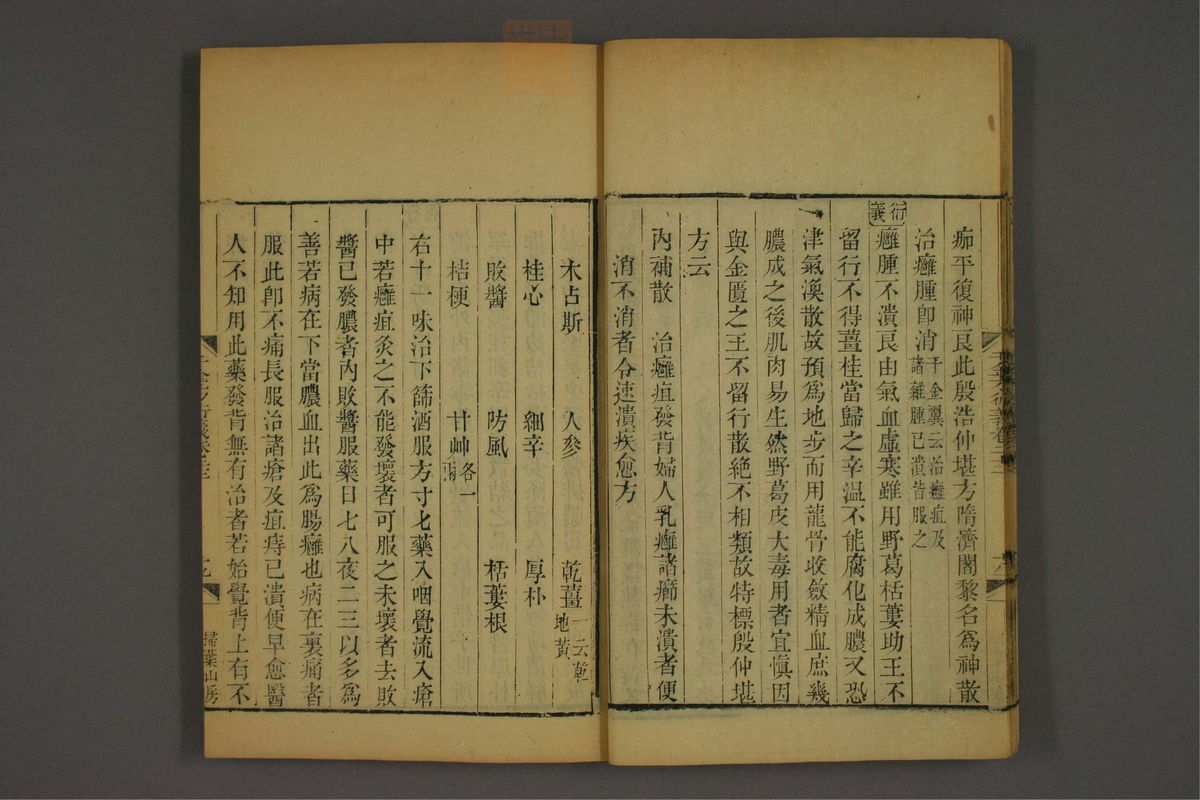 痂平復神良此殷浩仲堪方隋濟闍黎名爲神散
治癰腫卽消千金翼云治癰疽及諸雜腫已潰皆服之
衍義癰腫不潰良由氣血虛寒雖用野葛栝蔞助王不
留行不得薑桂當歸之辛温不能腐化成膿又恐
津氣渙散故預爲地步而用龍骨收斂精血庶幾
膿成之後肌肉易生然野葛皮大毒用者宜愼因
與金匱之王不留行散絶不相類故特標殷仲堪
方云
內補散　治癰疽發背婦人乳癰諸癤未潰者便
消不消者令速潰疾愈方
木占斯　人參　乾薑一云乾地黃
桂心　細辛　厚朴
敗醬　防風　栝蔞根
桔梗　甘艸各一兩
右十一味治下篩酒服方寸匕藥入咽覺流入瘡
中若癰疽灸之不能發壞者可服之未壞者去敗
醬已發膿者內敗醬服藥日七八夜二三以多爲
善若病在下當膿血出此爲腸癰也病在裏痛者
服此卽不痛長服治諸瘡及疽痔已潰便早愈醫
人不知用此藥發背無有治者若始覺背上有不
掃葉山房